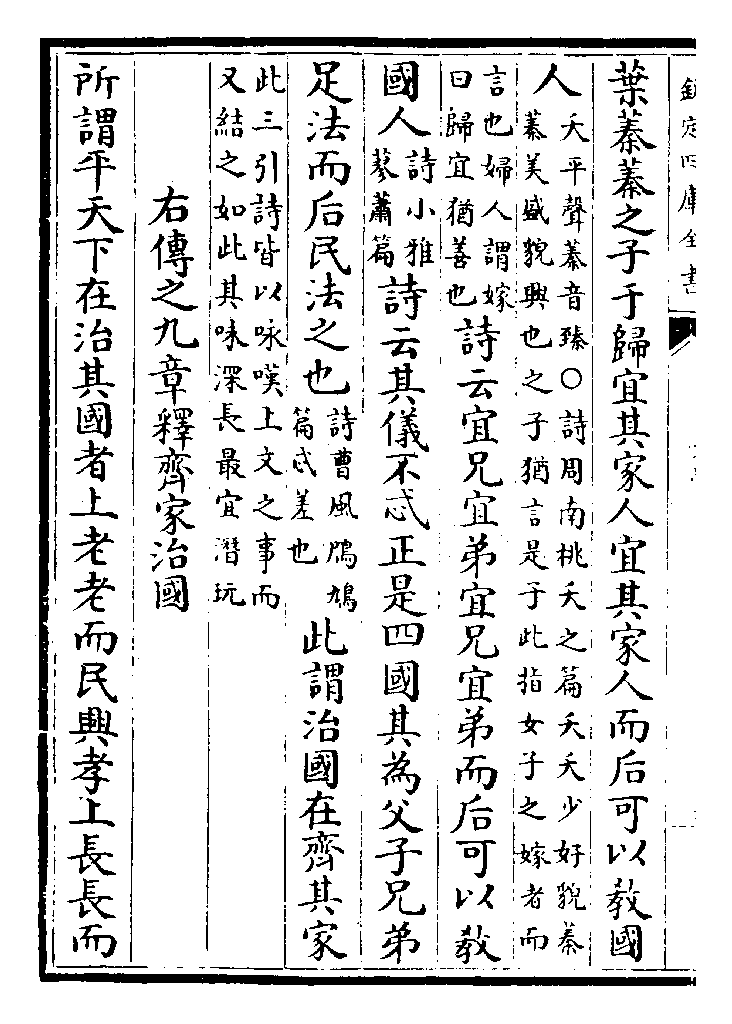 欽定四庫全書
葉蓁蓁之子于歸宜其家人宜其家人而后可以教國
人
夭平聲蓁音臻○詩周南桃夭之篇夭夭少好貌蓁
蓁美盛貌興也之子猶言是子此指女子之嫁者而
言也婦人謂嫁
曰歸宜猶善也
詩云宜兄宜弟宜兄宜弟而后可以教
國人
詩小雅
蓼蕭篇
詩云其儀不忒正是四國其為父子兄弟
足法而后民法之也
詩曹風鳲鳩
篇忒差也
此謂治國在齊其家
此三引詩皆以咏嘆上文之事而
又結之如此其味深長最宜潛玩
右傳之九章釋齊家治國
所謂平天下在治其國者上老老而民興孝上長長而